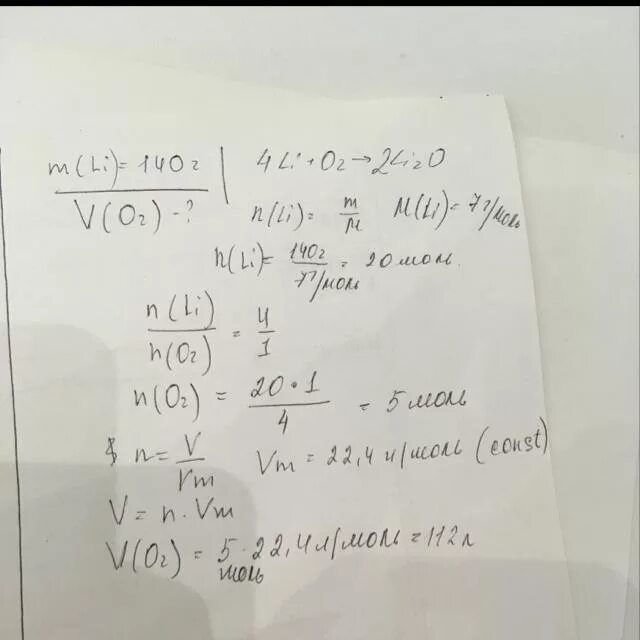 m(Li)=140г | 4Li+O₂→2Li₂O
V(O₂)-? n(Li)= m/M M(Li)=7г/моль
n(Li)= 140г/7г/моль = 20 моль.
n(Li)/n(O₂) = 4/1
n(O₂) = 20·1/4 = 5 моль
n=V/Vm Vm = 22,4 л/моль (const)
V=n·Vm
V(O₂) = 5 моль·22,4л/моль=112л